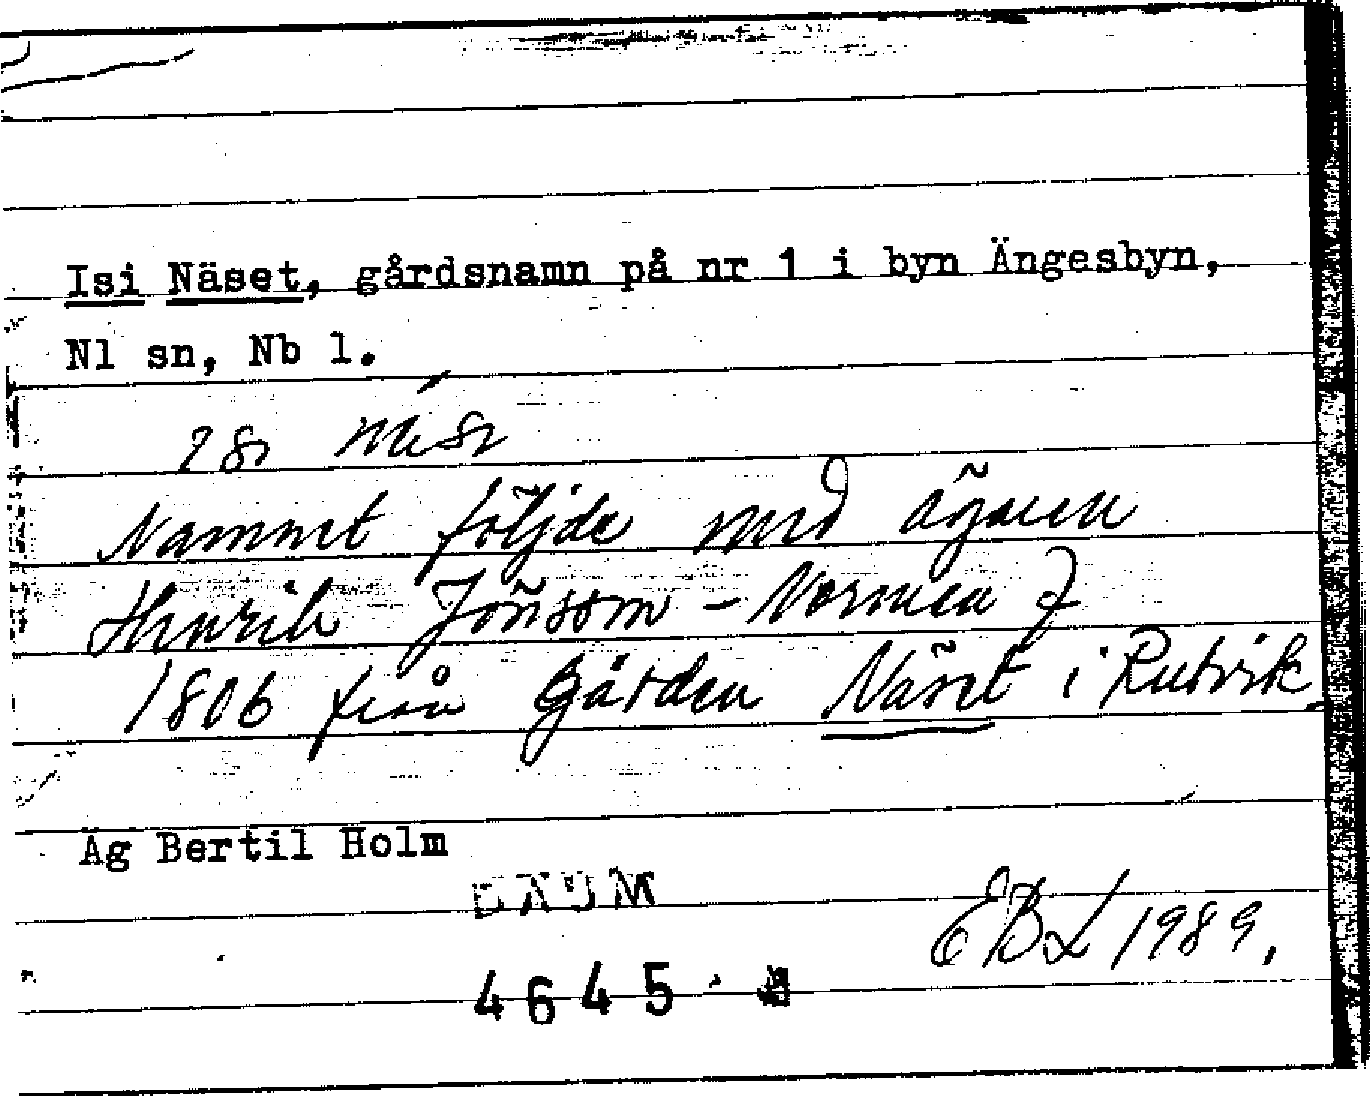 Isi Näset, gårdsnamn på nr 1 i byn Ängesbyn,
Nl sn, Nb l.
Namnet följde med ägaren
Henrik Jönsson - Norman
1806 från Gården Näset i Rutvik
Äg Bertil Holm
DAUM
EBL 1989.
4645